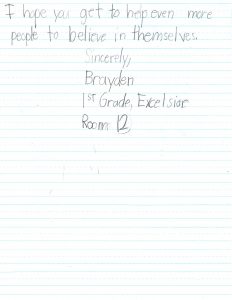 I hope you get to help even more
people to believe in themselves.
Sincerely,
Brayden
1st Grade, Excelsior
Room 12